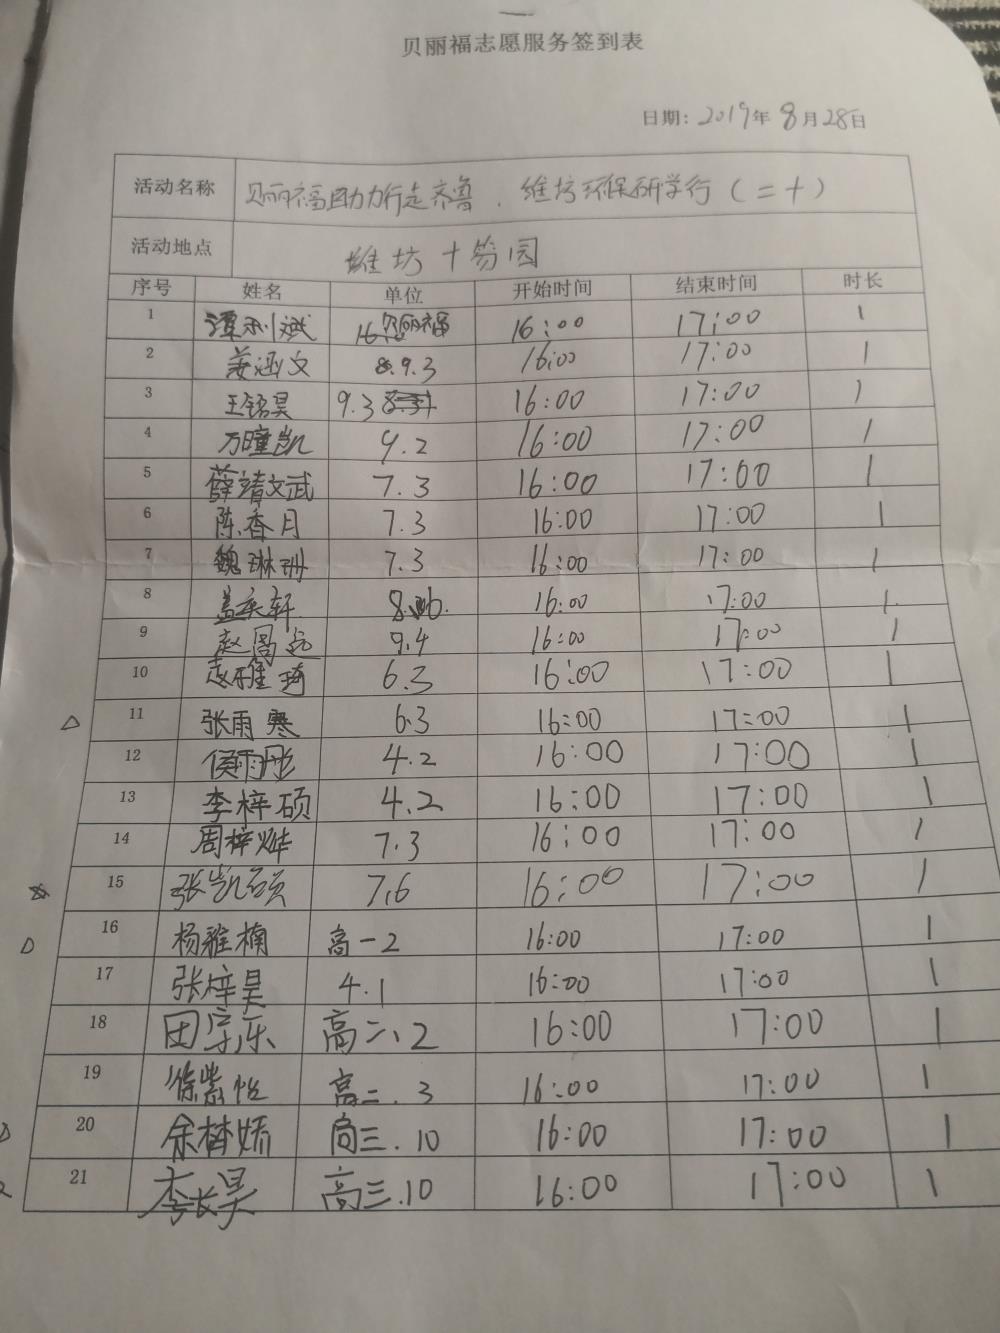 贝丽福志愿服务签到表
日期: 2019年 8月28日
活动名称 贝丽福助力行走齐鲁、潍坊环保研学行（二十）
活动地点 潍坊十笏园
序号 姓名 单位 开始时间 结束时间 时长
1 谭利斌 贝丽福 16:00 17:00 1
2 姜涵文 8.9.3 16:00 17:00 1
3 王铭昊 9.3 16:00 17:00 1
4 万瞳凯 9.2 16:00 17:00 1
5 薛靖文武 7.3 16:00 17:00 1
6 陈香月 7.3 16:00 17:00 1
7 魏琳珊 7.3 16:00 17:00 1
8 轩 16:00 17:00 1
9 赵 9.4 16:00 17:00 1
10 6.3 16:00 17:00 1
11 张雨寒 6.3 16:00 17:00 1
12 侯雨彤 4.2 16:00 17:00 1
13 李梓硕 4.2 16:00 17:00 1
14 周梓烨 7.3 16:00 17:00 1
15 张凯硕 7.6 16:00 17:00 1
16 杨雅楠 高一2 16:00 17:00 1
17 张梓昊 4.1 16:00 17:00 1
18 高二、2 16:00 17:00 1
19 徐紫怡 高二.3 16:00 17:00 1
20 余梦娇 高三.10 16:00 17:00 1
21 李长昊 高三.10 16:00 17:00 1